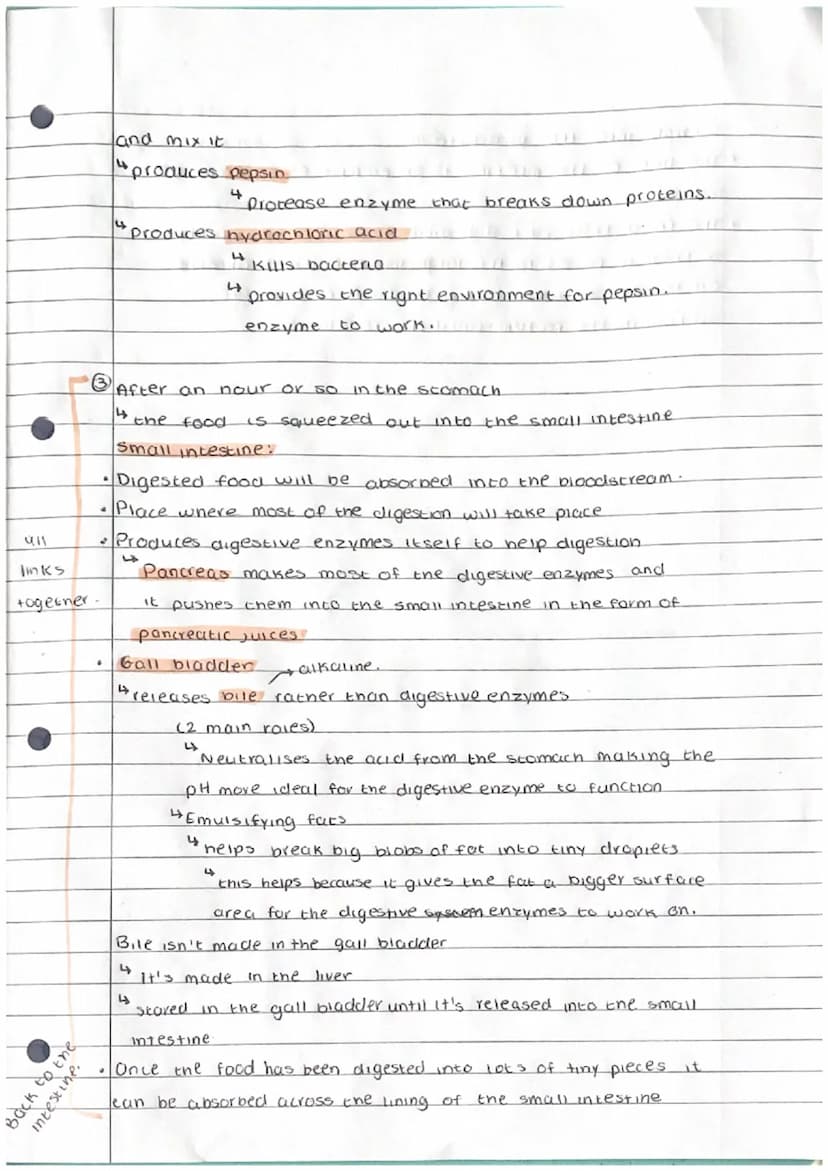 and mix it
↳ produces pepsin
↳ Protease enzyme that breaks down proteins.
↳ produces hydrochloric acid
↳ Kills bacteria
↳ provides the right environment for pepsin.
enzyme to work.
③ After an hour or so in the stomach
↳ the food is squeezed out into the small intestine
small intestine:
• Digested food will be absorbed into the bloodstream.
• Place where most of the digestion will take place
• Produces digestive enzymes itself to help digestion
↳ Pancreas makes most of the digestive enzymes and
it pushes them into the small intestine in the form of
pancreatic juices
all
links
together.
• Gall bladder → alkaline.
↳ releases bile rather than digestive enzymes
(2 main roles)
↳ Neutralises the acid from the stomach making the
pH more ideal for the digestive enzyme to function
↳ Emulsifying fats
↳ helps break big blobs of fat into tiny droplets
↳ this helps because it gives the fat a bigger surface
area for the digestive system enzymes to work on.
Bile isn't made in the gall bladder
↳ It's made in the liver
↳ stored in the gall bladder until it's released into the small
intestine
Back to the
intestine.
• Once the food has been digested into lots of tiny pieces it
can be absorbed across the lining of the small intestine